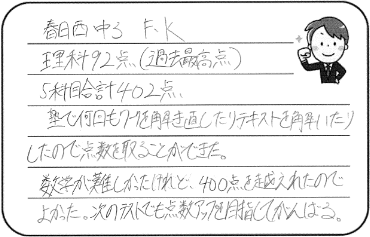 春日西中3 F.K
理科92点(過去最高点)
5科目合計402点
塾で何回もワークを解き直したりテキストを解いたり
したので点数を取ることができた。
数学が難しかったけれど、400点を越えれたので
よかった。次のテストでも点数アップを目指してがんばる。